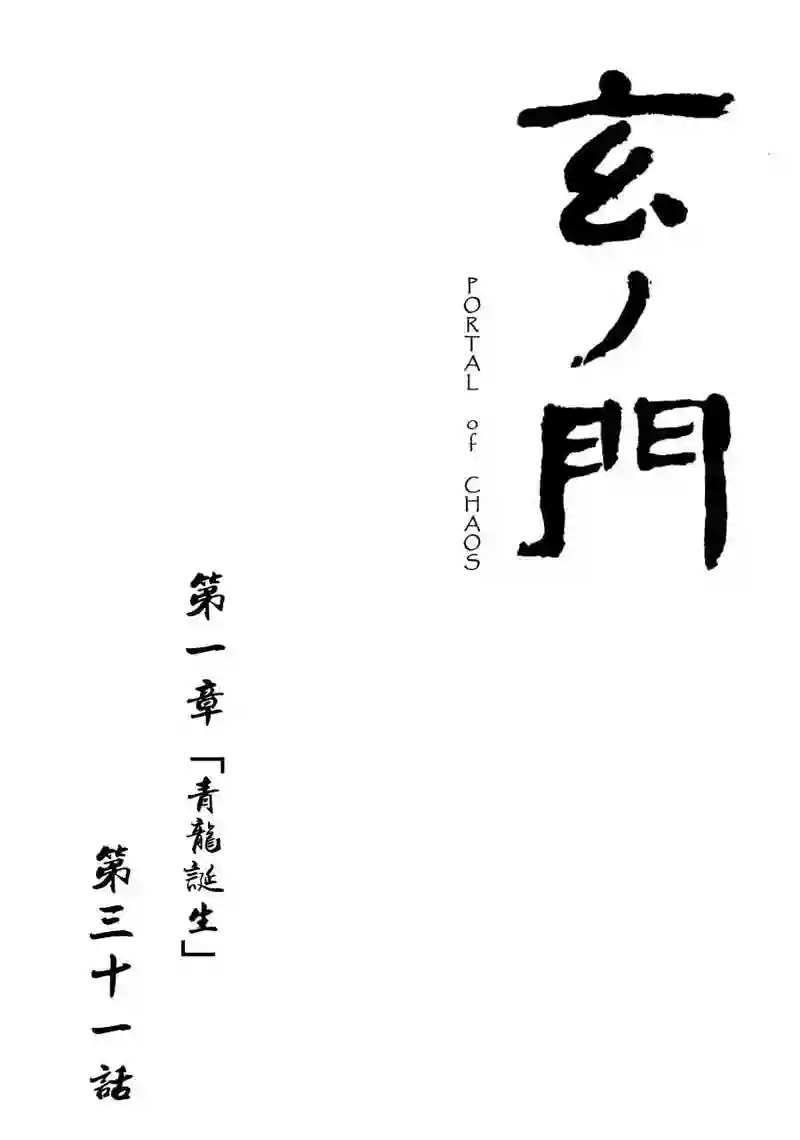 玄ノ門
PORTAL of CHAOS
第一章「青龍誕生」
第三十一話